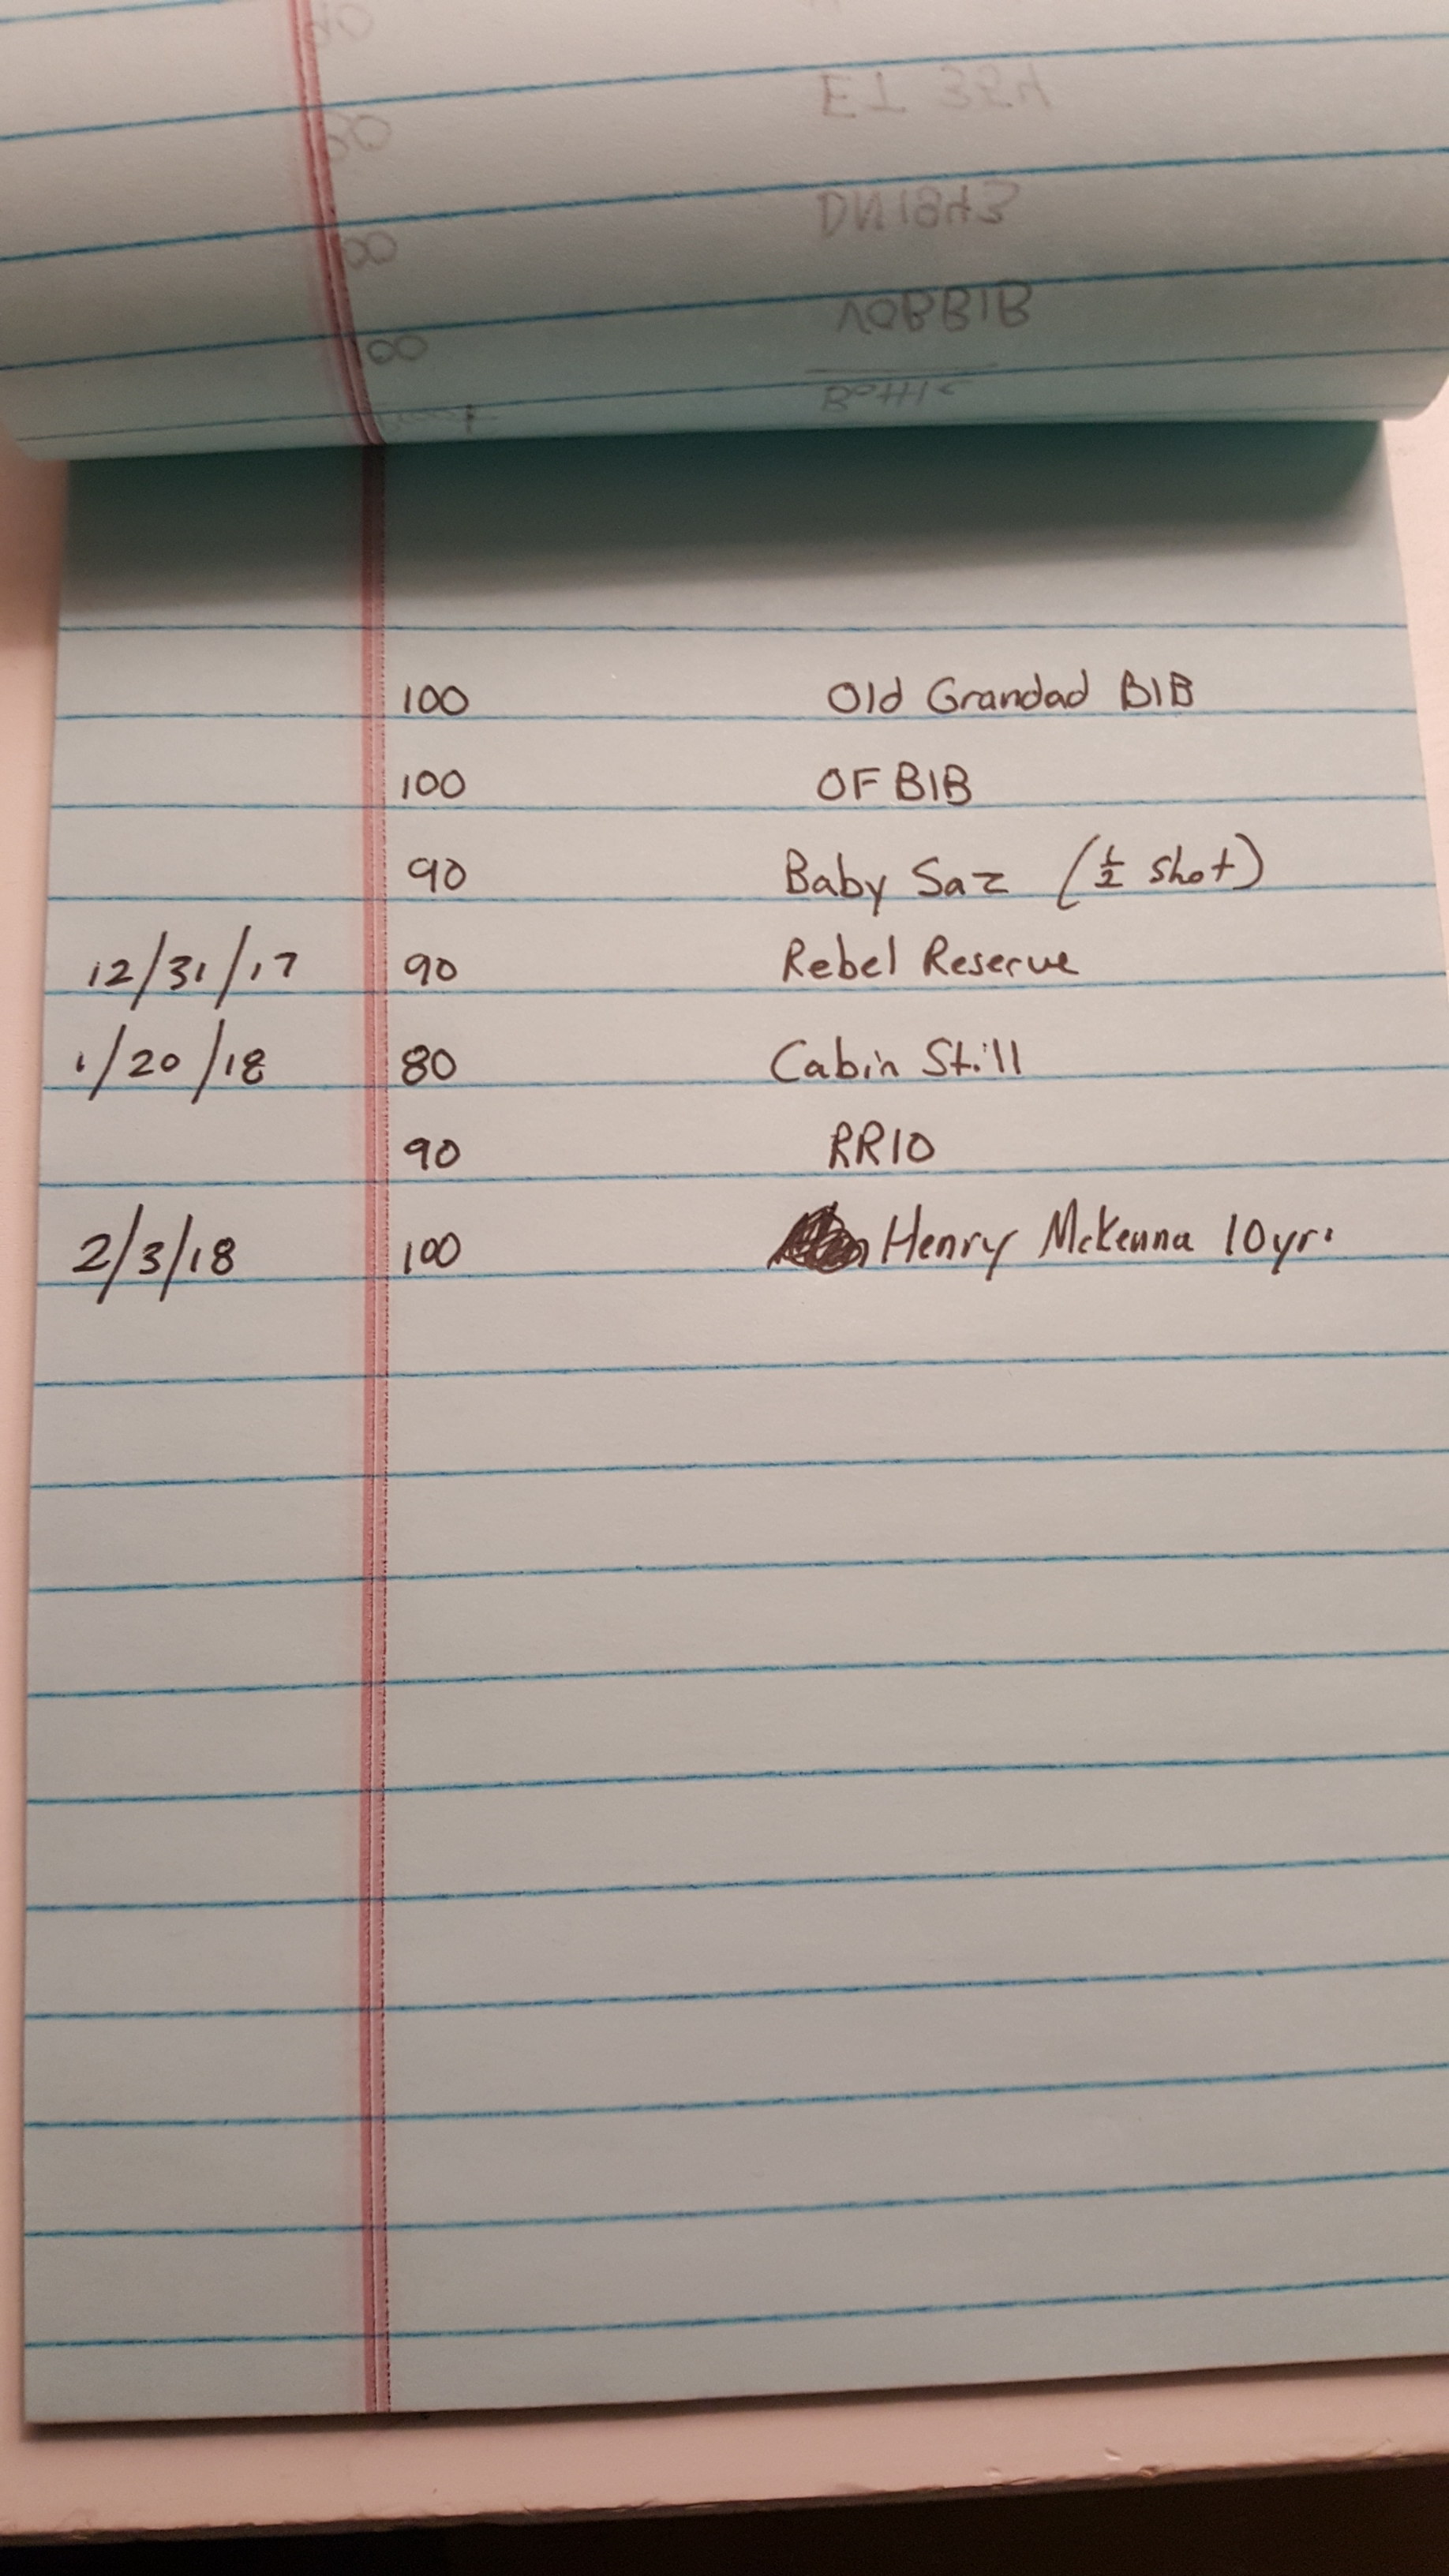 ET 354
DN1843
VOBBIB
Bottle
100 Old Grandad BIB
100 OF BIB
90 Baby Saz (1/2 shot)
12/31/17 90 Rebel Reserve
1/20/18 80 Cabin Still
90 RR10
2/3/18 100 Henry McKenna 10yr.